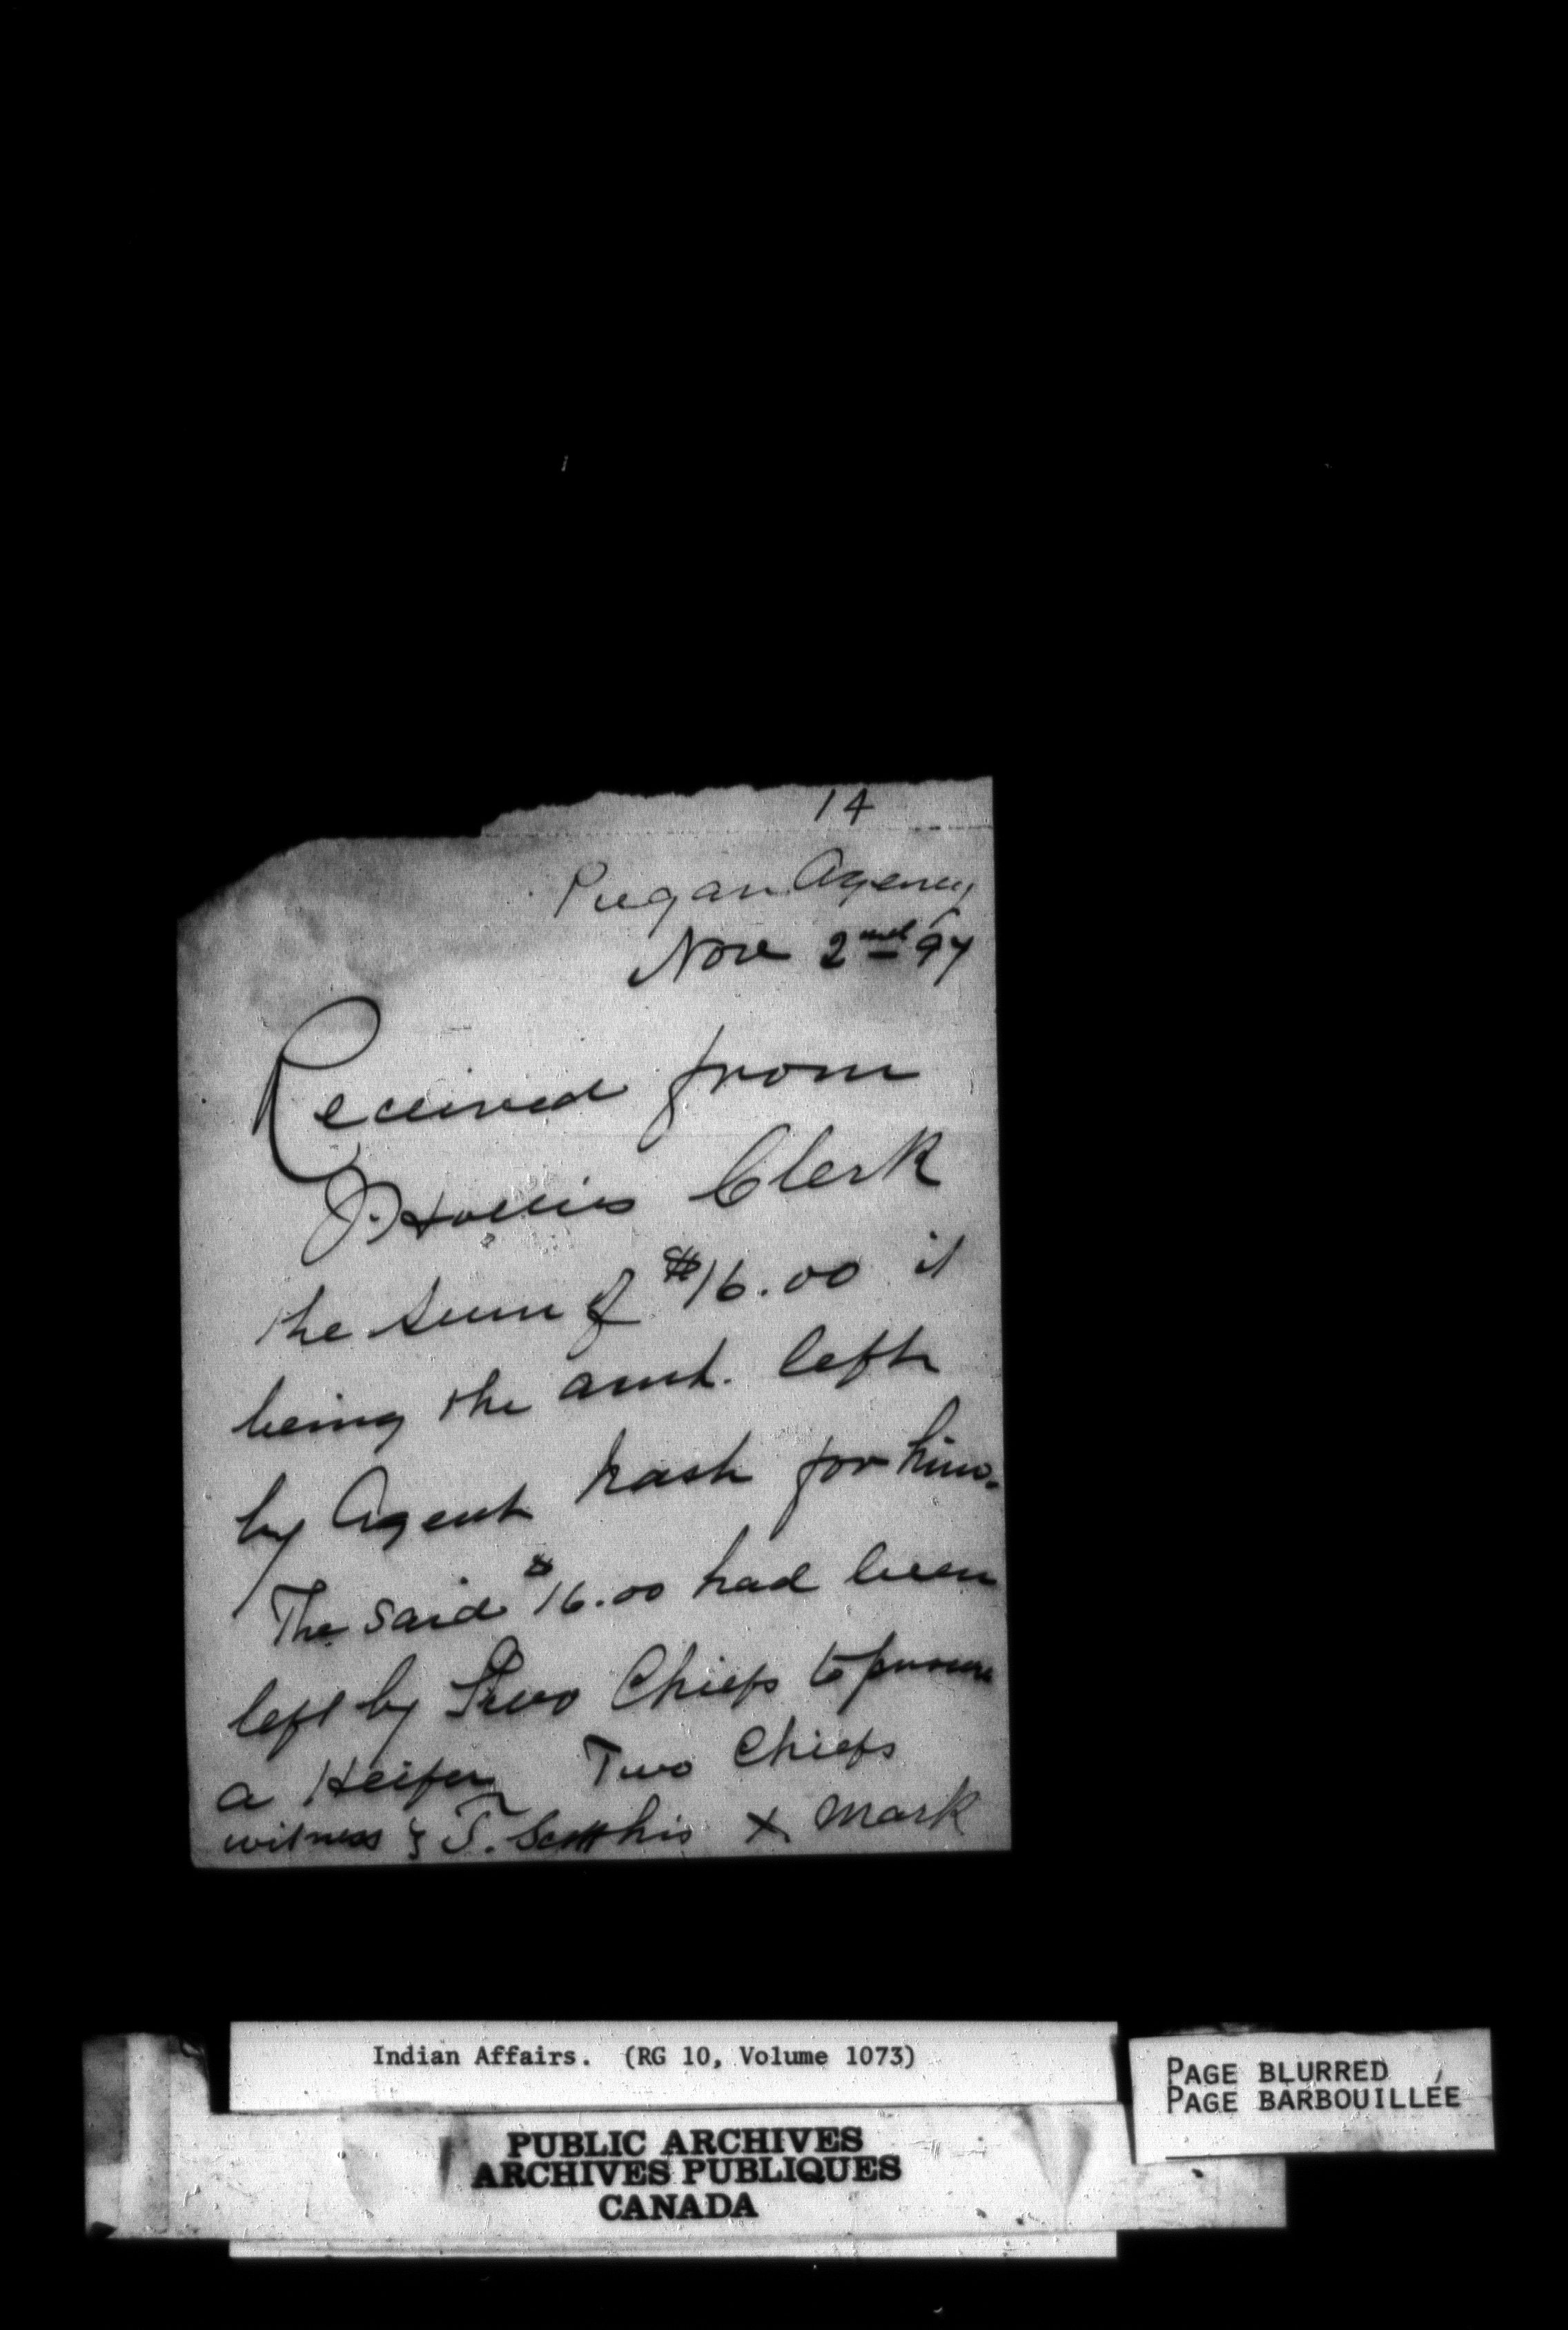 14
Piegan Agency
Nov 2nd 97
Received from
J. Hollies Clerk
the sum of $16.00 it
being the amt. left
by Agent Nash for him.
The said $16.00 had been
left by Two Chiefs to procure
a Heifer Two Chiefs
witness } T. Scott his X mark
Indian Affairs. (RG 10, Volume 1073)
PUBLIC ARCHIVES
ARCHIVES PUBLIQUES
CANADA
PAGE BLURRED
PAGE BARBOUILLÉE